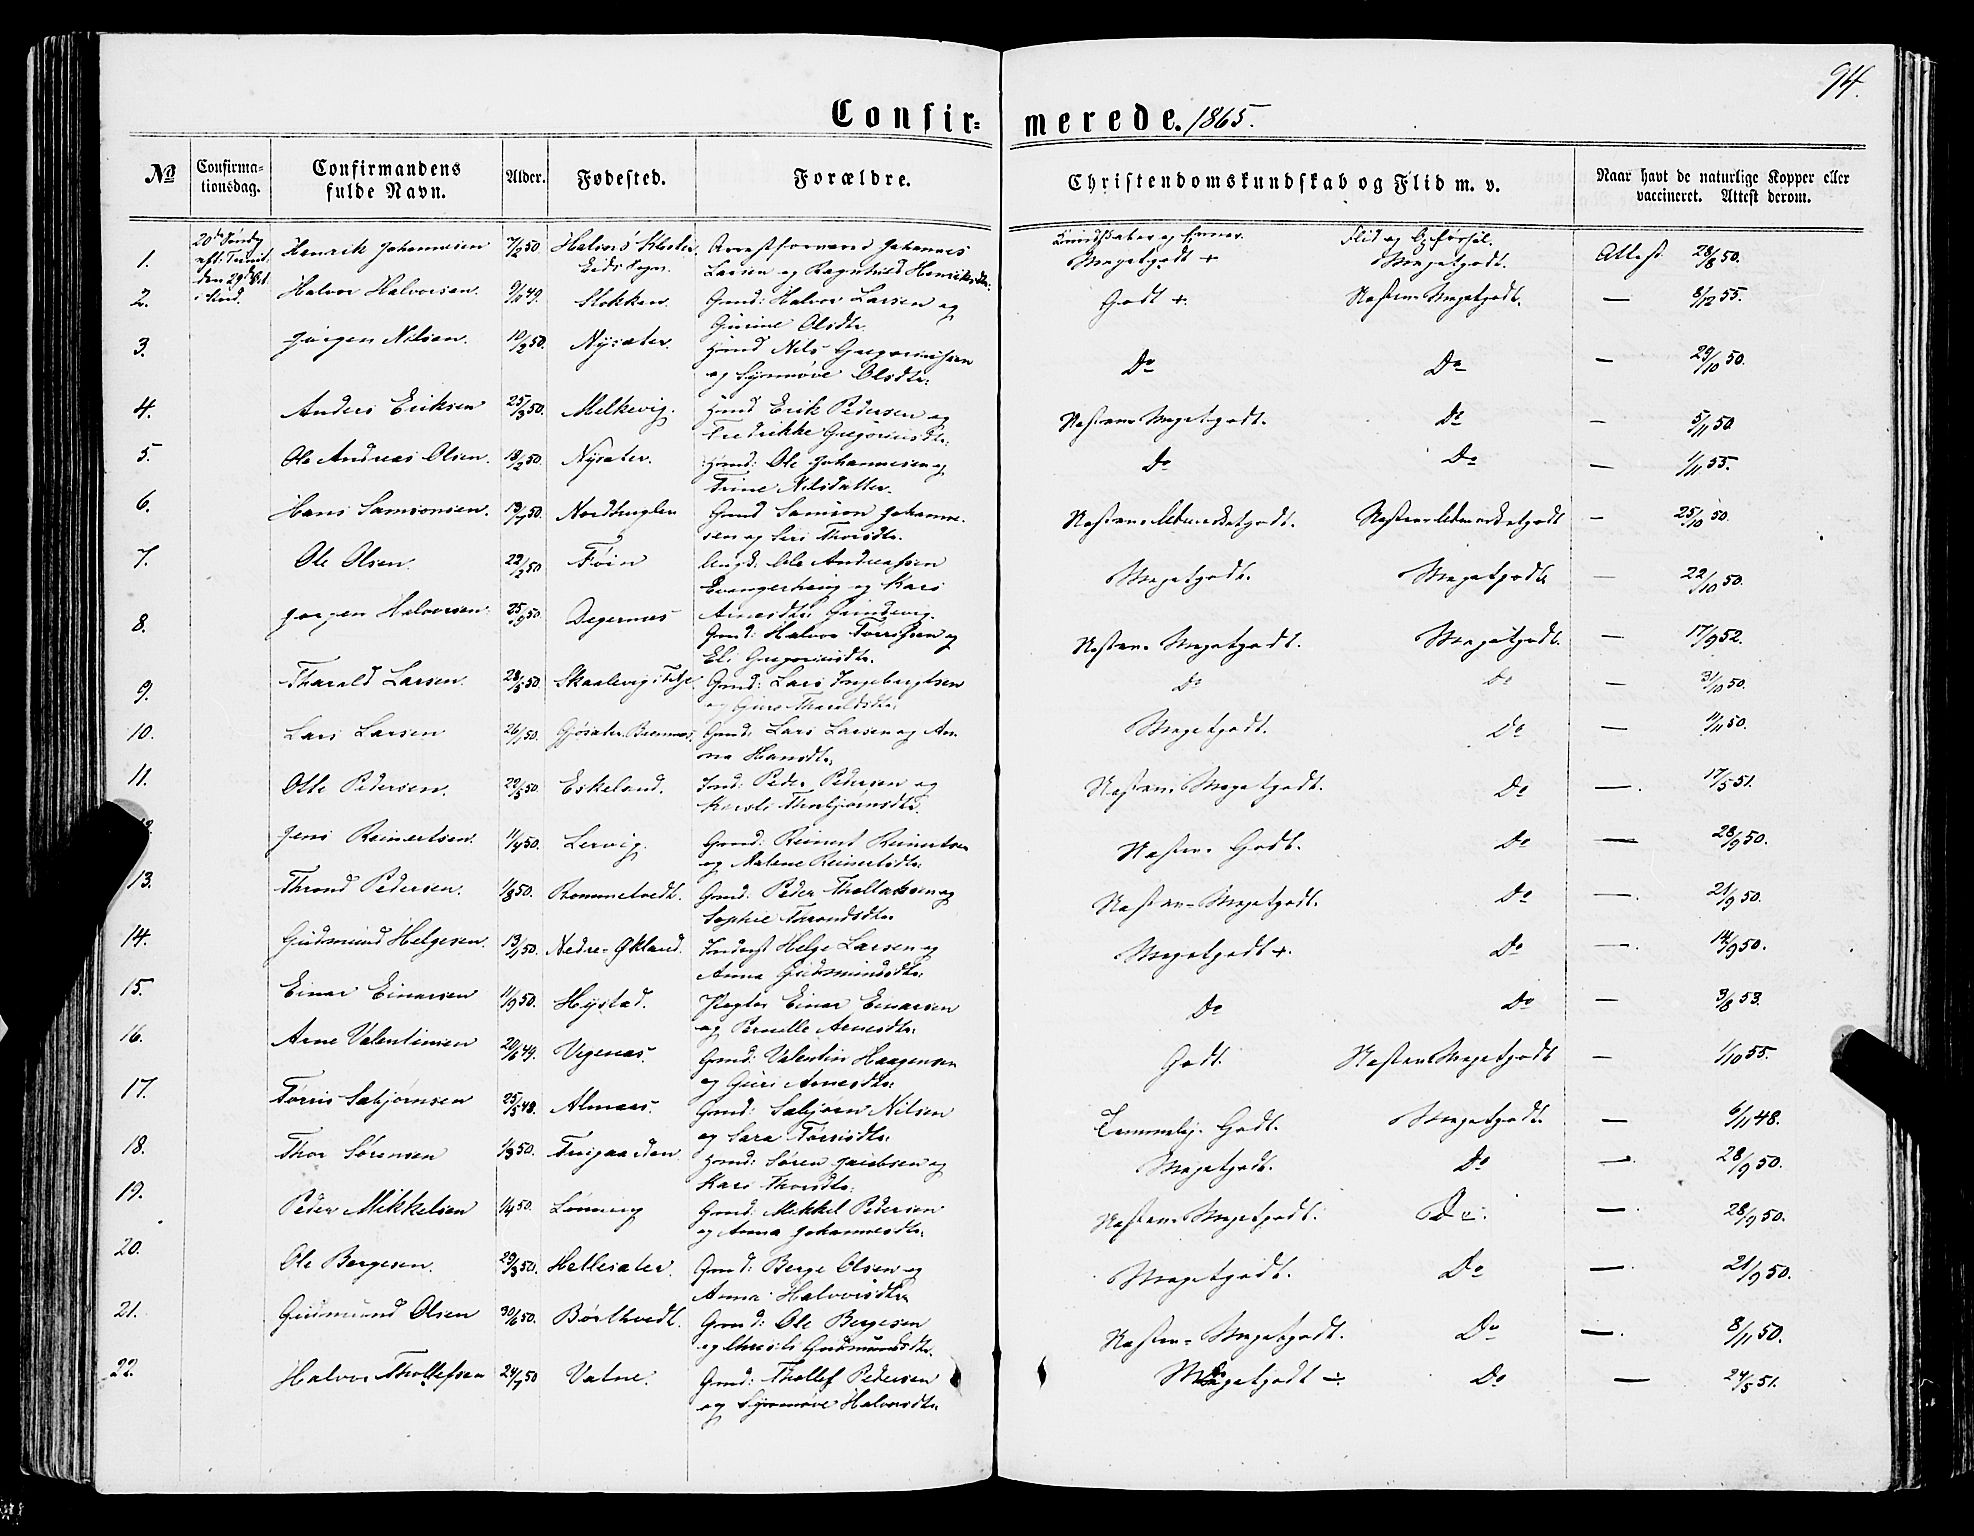 94.
Confir- merede. 1865.
No Confirma-tionsdag. Confirmandens fulde Navn. Alder. Fødested. Forældre. Christendomskundskab og Flid m. v. Naar havt de naturlige Kopper eller vaccineret. Attest derom.
20de Søndg eft. Trinit. den 29de Oct.
Kundskaber og Evner. Flid og Opførsel.
1. Henrik Johannesen 7/2 50. Johannes
Larsen og Ragnhild Henriksdtr. Megetgodt + Megetgodt. Attest 28/8 50.
2. Halvor Halvorsen. 9/10 49. Stokken. Gmd: Halvor Larsen og
Gurine Olsdtr. Godt +. Næsten Megetgodt. — 8/12 55.
3. Jørgen Nilsen. 10/2 50. Nysæter. Hmd Nils Gregoriussen
og Synnøve Olsdtr: Do Do — 29/10 50.
4. Anders Eriksen 25/3 50. Melkevig. Hmd Erik Pedersen og
Fredrikke Gregoriusdtr: Næsten Megetgodt. Do — 5/11 50.
5. Ole Andreas Olsen. 18/2 50. Nysæter. Hmd: Ole Johannesen og
Trine Nilsdatter. Do Do — 1/11 55.
6. Hans Samsonsen. 13/7 50. Nordhuglen Gmd Samson Johanne-
sen og Siri Thorsdtr. Næsten Udmærketgodt. Næsten Udmærketgodt — 25/10 50.
7. Ole Olsen. 22/2 50 Føien Ungk: Ole Andreassen
Evangerhaug og Kari
Arnesdtr: Grindevig. Megetgodt. Megetgodt — 22/10 50.
8. Jørgen Halvorsen. 25/9 50 Digernes Gmd: Halvor Tørrissen og
Eli Gregoriusdtr. Næsten Megetgodt. Megetgodt. — 17/9 52.
9. Tharald Larsen. 28/5 50. Skaalevig Gmd: Lars Ingebrigtsen
og Guro Tharaldsdtr: Do Do — 31/10 50.
10. Lars Larsen 26/1 50. Gjøsæter Bremnes. Gmd: Lars Larsen og An-
na Hansdtr. Megetgodt. Do — 4/11 50.
11. Otte Pedersen. 22/5 50. Eskeland. Ind: Peder Pedersen og
Kirsti Thorbjørnsdtr. Næsten Megetgodt. Do — 17/5 51.
Jens Reinertsen. 11/4 50. Lervig. Gmd: Reinert Reinertsen
og Malene Reinertsdtr. Næsten Godt. Do — 28/9 50.
13. Thrond Pedersen. 1/8 50. Rommetvedt. Gmd: Peder Thollaksen og
Sophie Throndsdtr. Næsten Megetgodt. Do — 21/9 50.
14. Gudmund Helgesen. 13/1 50. Nedre-Økland. Inderst Helge Larsen og
Anna Gudmundsdtr: Megetgodt +. Do — 14/9 50.
15. Einar Einarsen 11/9 50. Hystad. Forpagter Einar Einarsen
og Pernille Arnesdtr. Do Do — 3/8 53.
16. Arne Valentinsen 20/6 49. Vegenæs. Gmd: Valentin Haagensen
og Guri Arnesdtr: Godt. Næsten Megetgodt — 1/10 55.
17. Tørris Sæbjørnsen 25/5 48. Almaas. Gmd: Sæbjørn Nilsen
og Sara Tørrisdtr: Temmelig Godt. Megetgodt. — 6/11 48.
18. Thor Sørensen 1/3 50. Frøigaarden Hmd: Søren Jacobsen og
Kari Thorsdtr. Megetgodt. Do — 28/9 50.
19. Peder Mikkelsen 1/4 50. Lønning Gmd: Mikkel Pedersen
og Anna Johannesdtr: Næsten Megetgodt. Do. — 28/9 50.
20. Ole Bergesen. 29/3 50. Hellesæter. Gmd: Berge Olsen og
Anna Halvorsdtr. Megetgodt. Do — 21/9 50.
21. Gudmund Olsen 30/6 50. Børthvedt. Gmd: Ole Bergesen
og Gudmundsdtr. Næsten Megetgodt. Do — 8/11 50.
22. Halvor Thollefsen 24/7 50 Valne. Gmd: Thollef Pedersen
og Synnøve Halvorsdtr. Megetgodt ÷. Do — 24/5 51.